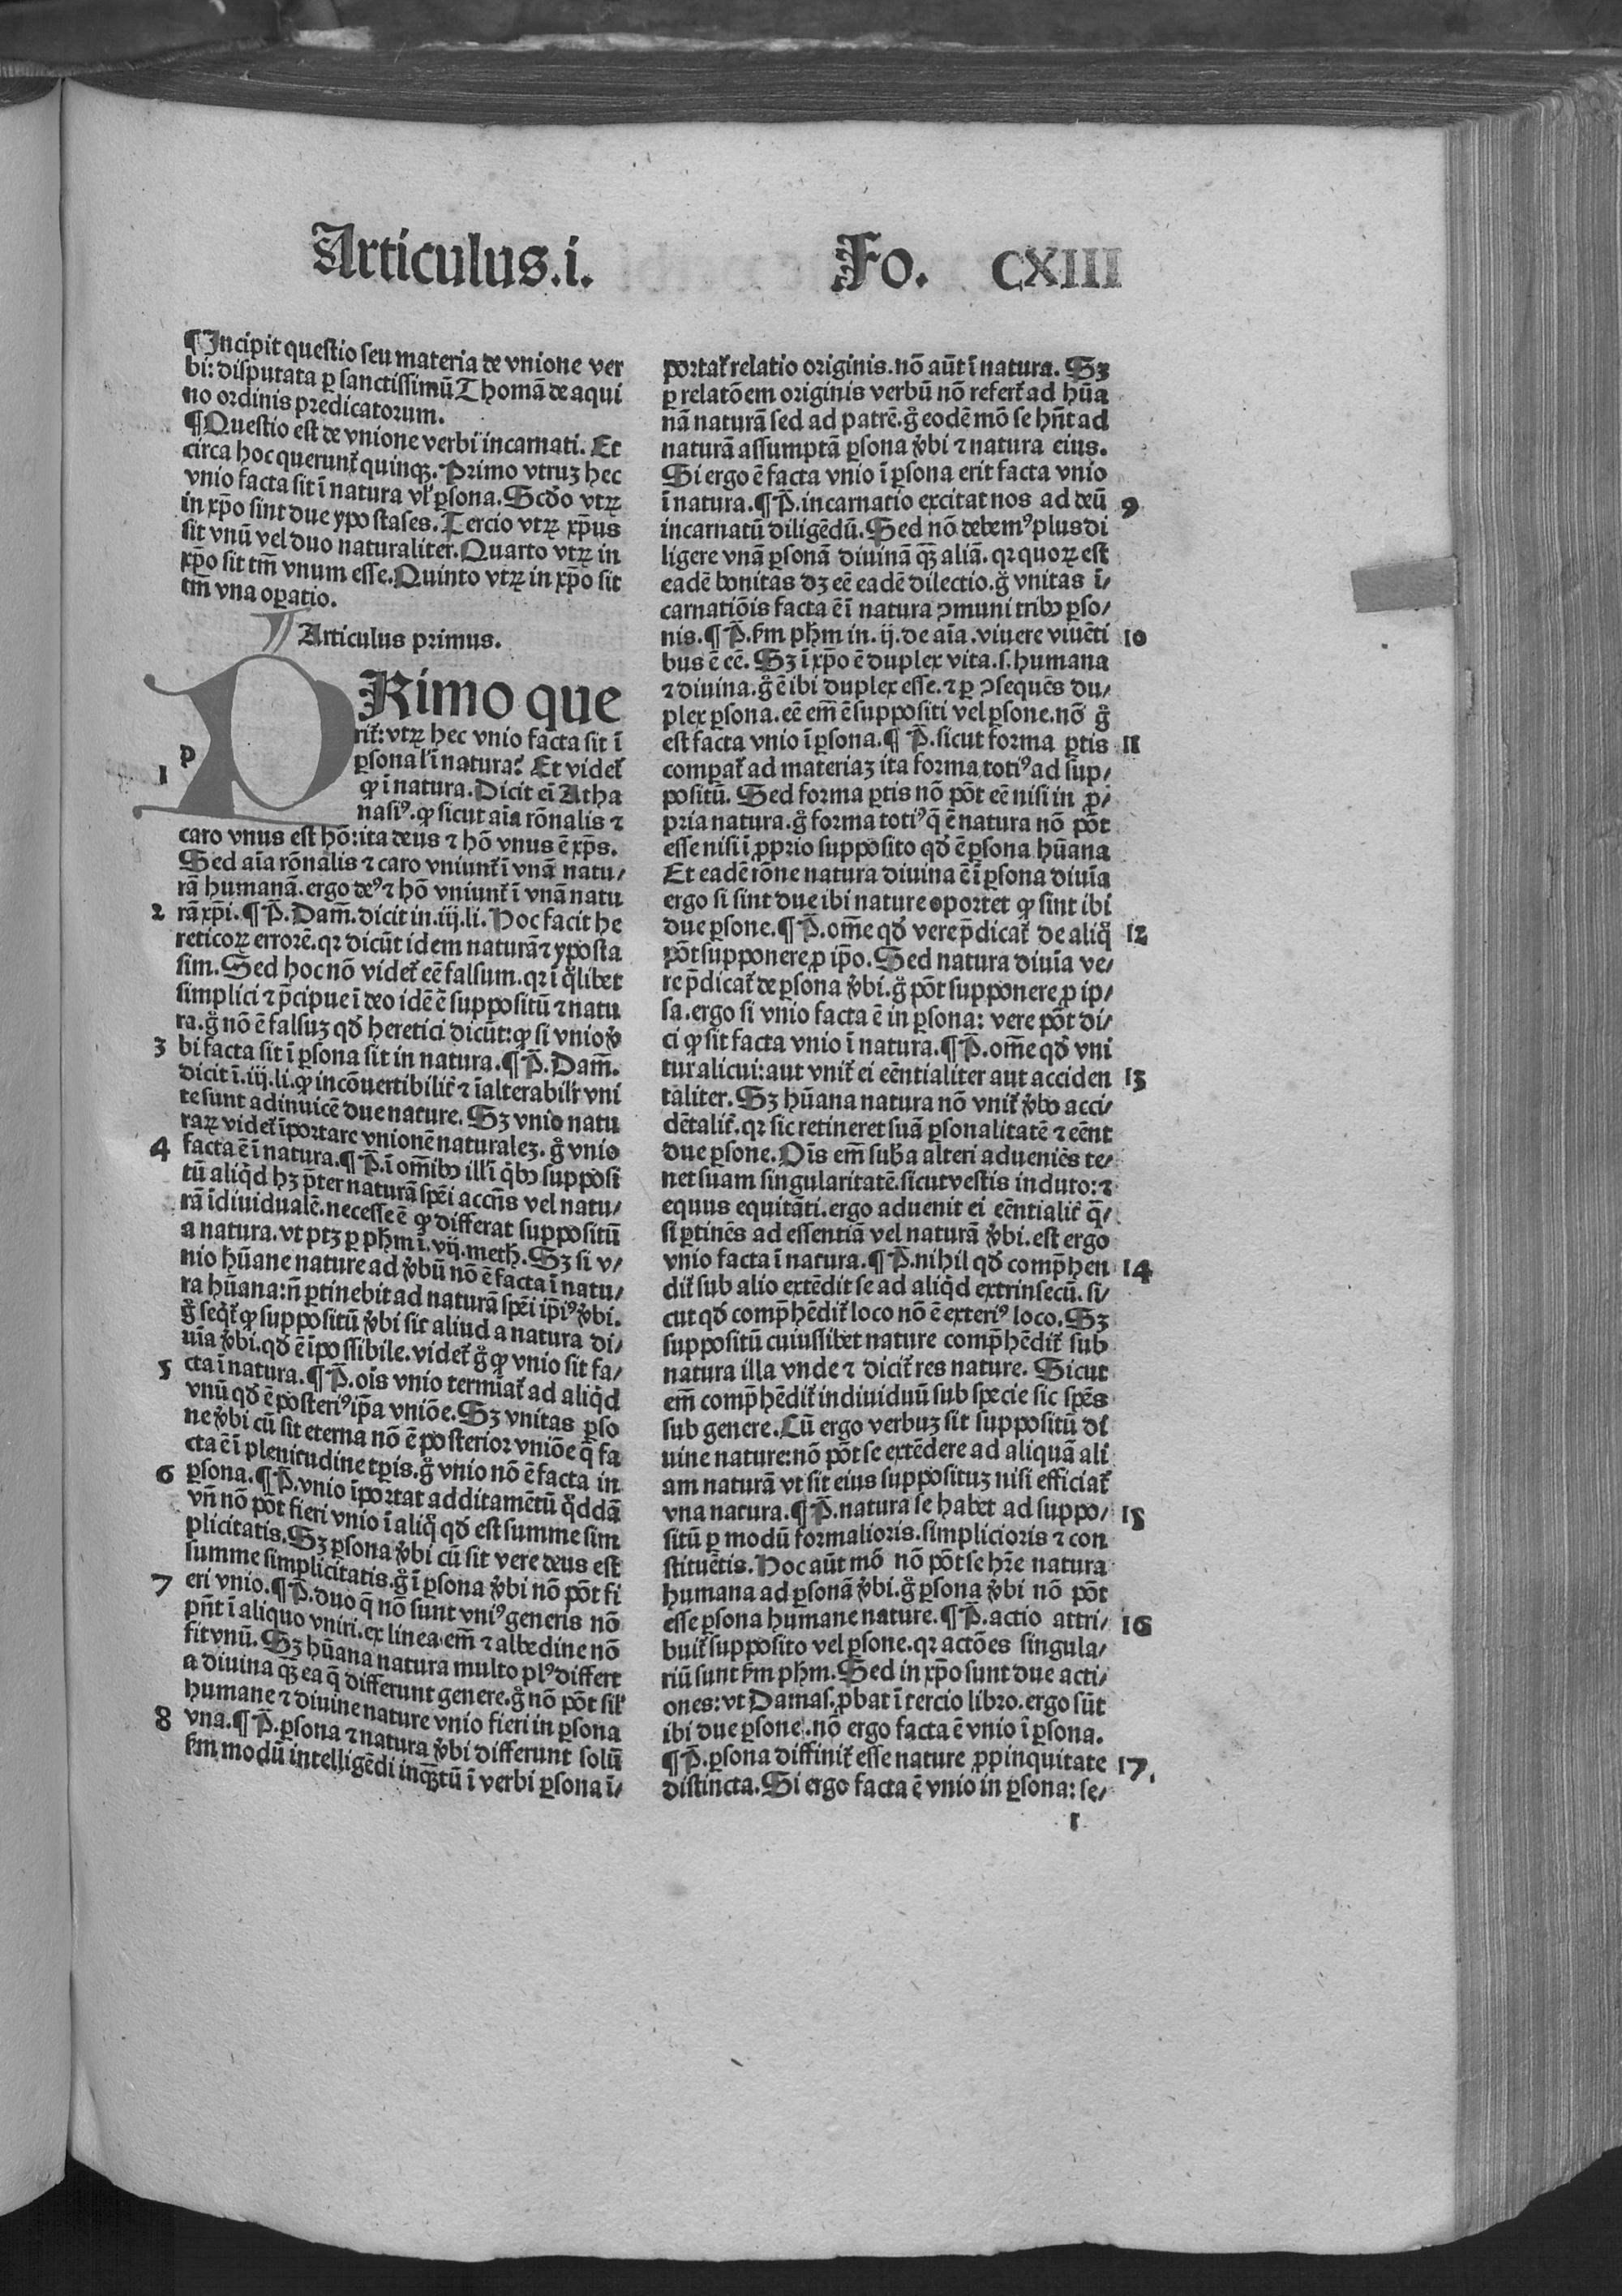 Articulus.i. Fo. CXIII
¶Incipit questio seu materia de vnione ver
bi: disputata ꝑ sanctissimũ Thomã de aqui
no ordinis predicatorum.
¶Questio est de vnione verbi incarnati. Et
circa hoc querunt᷑ quinqꝫ. Primo vtruꝫ hec
vnio facta sit ĩ natura vl᷑ ꝑsona. Scd̃o vtrꝝ
in xp̃o sint due ypostases. Tercio vtrꝝ xp̃us
sit vnũ vel duo naturaliter. Quarto vtrꝝ in
xp̃o sit tm̃ vnum esse. Quinto vtrꝝ in xp̃o sit
tm̃ vna oꝑatio.
¶ Articulus primus.
PRimo que
p
rit᷑: vtrꝝ hec vnio facta sit ĩ
1 ꝑsona l᷑ ĩ natura? Et videt᷑
ꝙ ĩ natura. Dicit em̃ Atha
nasiꝰ. ꝙ sicut aĩa rõnalis ⁊
caro vnus est hõ: ita deus ⁊ hõ vnus ẽ xp̃s.
Sed aĩa rõnalis ⁊ caro vniunt᷑ ĩ vnã natu/
rã humanã. ergo deꝰ ⁊ hõ vniunt᷑ ĩ vnã natu
2 rã xp̃i. ¶ P̃. Dam̃. dicit in.iij.li. Hoc facit he
reticoꝝ errorẽ. qꝛ dicũt idem naturã ⁊ yposta
sim. Sed hoc nõ videt᷑ eẽ falsum. qꝛ ĩ qͦlibet
simplici ⁊ p̃cipue ĩ deo idẽ ẽ suppositũ ⁊ natu
ra. gͦ nõ ẽ falsuꝫ qd̃ heretici dicũt: ꝙ si vnio v̾
3 bi facta sit ĩ ꝑsona sit in natura. ¶ P̃. Dam̃.
dicit ĩ.iij.li. ꝙ incõuertibilit᷑ ⁊ ĩalterabilit᷑ vni
te sunt adinuicẽ due nature. Sꝫ vnio natu
raꝝ videt᷑ ĩportare vnionẽ naturaleꝫ. gͦ vnio
4 facta ẽ ĩ natura. ¶ P̃. ĩ om̃ibꝰ ill᷑ ĩ qͥbꝰ supposi
tũ aliqͥd hꝫ p̃ter naturã sp̃ei accñs vel natu/
rã ĩdiuidualẽ. necesse ẽ ꝙ differat suppositũ
a natura. vt ptꝫ ꝑ ph̃m ĩ.vij.meth̃. Sꝫ si v/
nio hũane nature ad v̾bũ nõ ẽ facta ĩ natu/
ra hũana: ñ ꝑtinebit ad naturã sp̃ei ip̃iꝰ v̾bi.
gͦ seqͥt᷑ ꝙ suppositũ v̾bi sit aliud a natura di/
uĩa v̾bi. qd̃ ẽ ĩpossibile. videt᷑ gͦ ꝙ vnio sit fa/
5 cta ĩ natura. ¶ P̃. oĩs vnio termĩat᷑ ad aliqͥd
vnũ qd̃ ẽ posteriꝰ ip̃a vniõe. Sꝫ vnitas ꝑso
ne v̾bi cũ sit eterna nõ ẽ posterior vniõe q̃ fa
cta ẽ ĩ plenitudine tꝑis. gͦ vnio nõ ẽ facta in
6 ꝑsona. ¶ P̃. vnio ĩportat additamẽtũ qͦddã
vñ nõ põt fieri vnio ĩ aliqͦ qd̃ est summe sim
plicitatis. Sꝫ ꝑsona v̾bi cũ sit vere deus est
summe simplicitatis. gͦ ĩ ꝑsona v̾bi nõ põt fi
7 eri vnio. ¶ P̃. duo q̃ nõ sunt vniꝰ generis nõ
pñt ĩ aliquo vniri. ex linea em̃ ⁊ albedine nõ
fit vnũ. Sꝫ hũana natura multo plꝰ differt
a diuina qꝫ̃ ea q̃ differunt genere. gͦ nõ põt sil᷑
humane ⁊ diuine nature vnio fieri in ꝑsona
8 vna. ¶ P̃. ꝑsona ⁊ natura v̾bi differunt solũ
ẜm modũ intelligẽdi inqꝫ̃tũ ĩ verbi ꝑsona ĩ/
portat᷑ relatio originis. nõ aũt ĩ natura. Sꝫ
ꝑ relatõem originis verbũ nõ refert᷑ ad hũa
nã naturã sed ad patrẽ. gͦ eodẽ mõ se hñt ad
naturã assumptã ꝑsona v̾bi ⁊ natura eius.
Si ergo ẽ facta vnio ĩ ꝑsona erit facta vnio
ĩ natura. ¶ P̃. incarnatio excitat nos ad deũ 9
incarnatũ diligẽdũ. Sed nõ debemꝰ plus di
ligere vnã ꝑsonã diuinã qꝫ̃ aliã. qꝛ quoꝝ est
eadẽ bonitas dꝫ eẽ eadẽ dilectio. gͦ vnitas ĩ/
carnatiõis facta ẽ ĩ natura ꝯmuni tribꝰ ꝑso/
nis. ¶ P̃. ẜm ph̃m in.ij.de aĩa. viuere viuẽti 10
bus ẽ eẽ. Sꝫ ĩ xp̃o ẽ duplex vita. s. humana
⁊ diuina. gͦ ẽ ibi duplex esse. ⁊ ꝑ ꝯsequẽs du/
plex ꝑsona. eẽ em̃ ẽ suppositi vel ꝑsone. nõ gͦ
est facta vnio ĩ ꝑsona. ¶ P̃. sicut forma ꝑtis 11
compat᷑ ad materiaꝫ ita forma totiꝰ ad sup/
positũ. Sed forma ꝑtis nõ põt eẽ nisi in ꝓ/
pria natura. gͦ forma totiꝰ q̃ ẽ natura nõ põt
esse nisi ĩ ꝓprio supposito qd̃ ẽ ꝑsona hũana
Et eadẽ rõne natura diuina ẽ ĩ ꝑsona diuĩa
ergo si sint due ibi nature oportet ꝙ sint ibi
due ꝑsone. ¶ P̃. om̃e qd̃ vere p̃dicat᷑ de aliqͦ 12
põt supponere ꝓ ip̃o. Sed natura diuĩa ve/
re p̃dicat᷑ de ꝑsona v̾bi. gͦ põt supponere ꝓ ip/
sa. ergo si vnio facta ẽ in ꝑsona: vere põt di/
ci ꝙ sit facta vnio ĩ natura. ¶ P̃. om̃e qd̃ vni
tur alicui: aut vnit᷑ ei eẽntialiter aut acciden 13
taliter. Sꝫ hũana natura nõ vnit᷑ v̾bo acci/
dẽtalit᷑. qꝛ sic retineret suã ꝑsonalitatẽ ⁊ eẽnt
due ꝑsone. Oĩs em̃ sub̾a alteri adueniẽs te/
net suam singularitatẽ. sicut vestis induto: ⁊
equus equitãti. ergo aduenit ei eẽntialit᷑ q̃/
si ꝑtinẽs ad essentiã vel naturã v̾bi. est ergo
vnio facta ĩ natura. ¶ P̃. nihil qd̃ comp̃hen 14
dit᷑ sub alio extẽdit se ad aliqͥd extrinsecũ. si/
cut qd̃ comp̃hẽdit᷑ loco nõ ẽ exteriꝰ loco. Sꝫ
suppositũ cuiuslibet nature comp̃hẽdit᷑ sub
natura illa vnde ⁊ dicit᷑ res nature. Sicut
em̃ comp̃hẽdit᷑ indiuiduũ sub specie sic sp̃es
sub genere. Cũ ergo verbuꝫ sit suppositũ di
uine nature: nõ põt se extẽdere ad aliquã ali
am naturã vt sit eius suppositꝫ nisi efficiat᷑
vna natura. ¶ P̃. natura se habet ad suppo/ 15
sitũ ꝑ modũ formalioris. simplicioris ⁊ con
stituẽtis. Hoc aũt mõ nõ põt se hr̃e natura
humana ad ꝑsonã v̾bi. gͦ ꝑsona v̾bi nõ põt
esse ꝑsona humane nature. ¶ P̃. actio attri/ 16
buit᷑ supposito vel ꝑsone. qꝛ actões singula/
riũ sunt ẜm ph̃m. Sed in xp̃o sunt due acti/
ones: vt Damas. ꝓbat ĩ tercio libro. ergo sũt
ibi due ꝑsone. nõ ergo facta ẽ vnio ĩ ꝑsona.
¶ P̃. ꝑsona diffinit᷑ esse nature ꝓpinquitate 17
distincta. Si ergo facta ẽ vnio in ꝑsona: se/
r